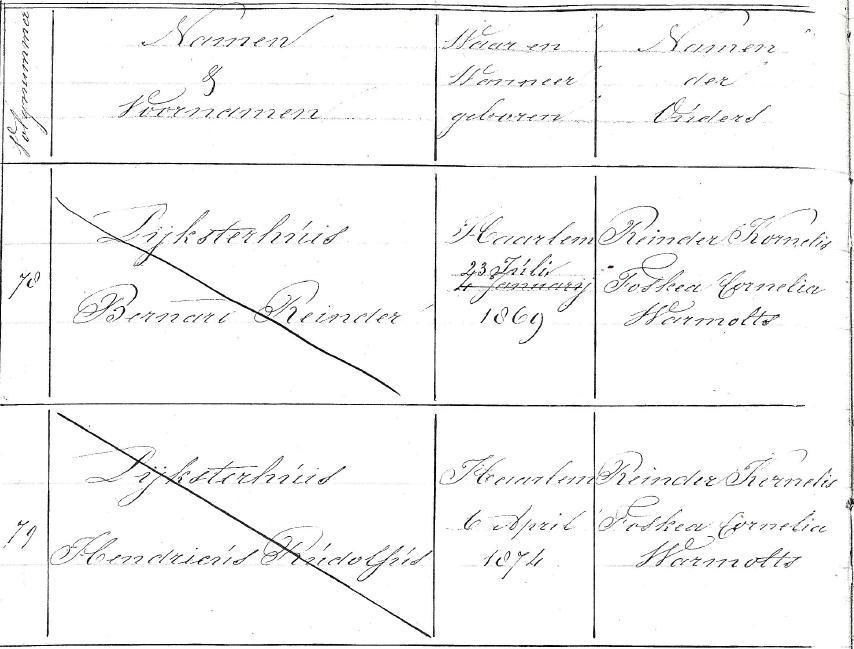 Volgnummer
Namen
&
Voornamen
Waar en
Wanneer
geboren
Namen
der
Ouders
78
Dijksterhuis
Bernard Reinder
Haarlem
23 Juli
4 Januarij
1869
Reinder Kornelis
Foskea Cornelia
Warmolts
79
Dijksterhuis
Hendricus Rudolfus
Haarlem
6 April
1874
Reinder Kornelis
Foskea Cornelia
Warmolts